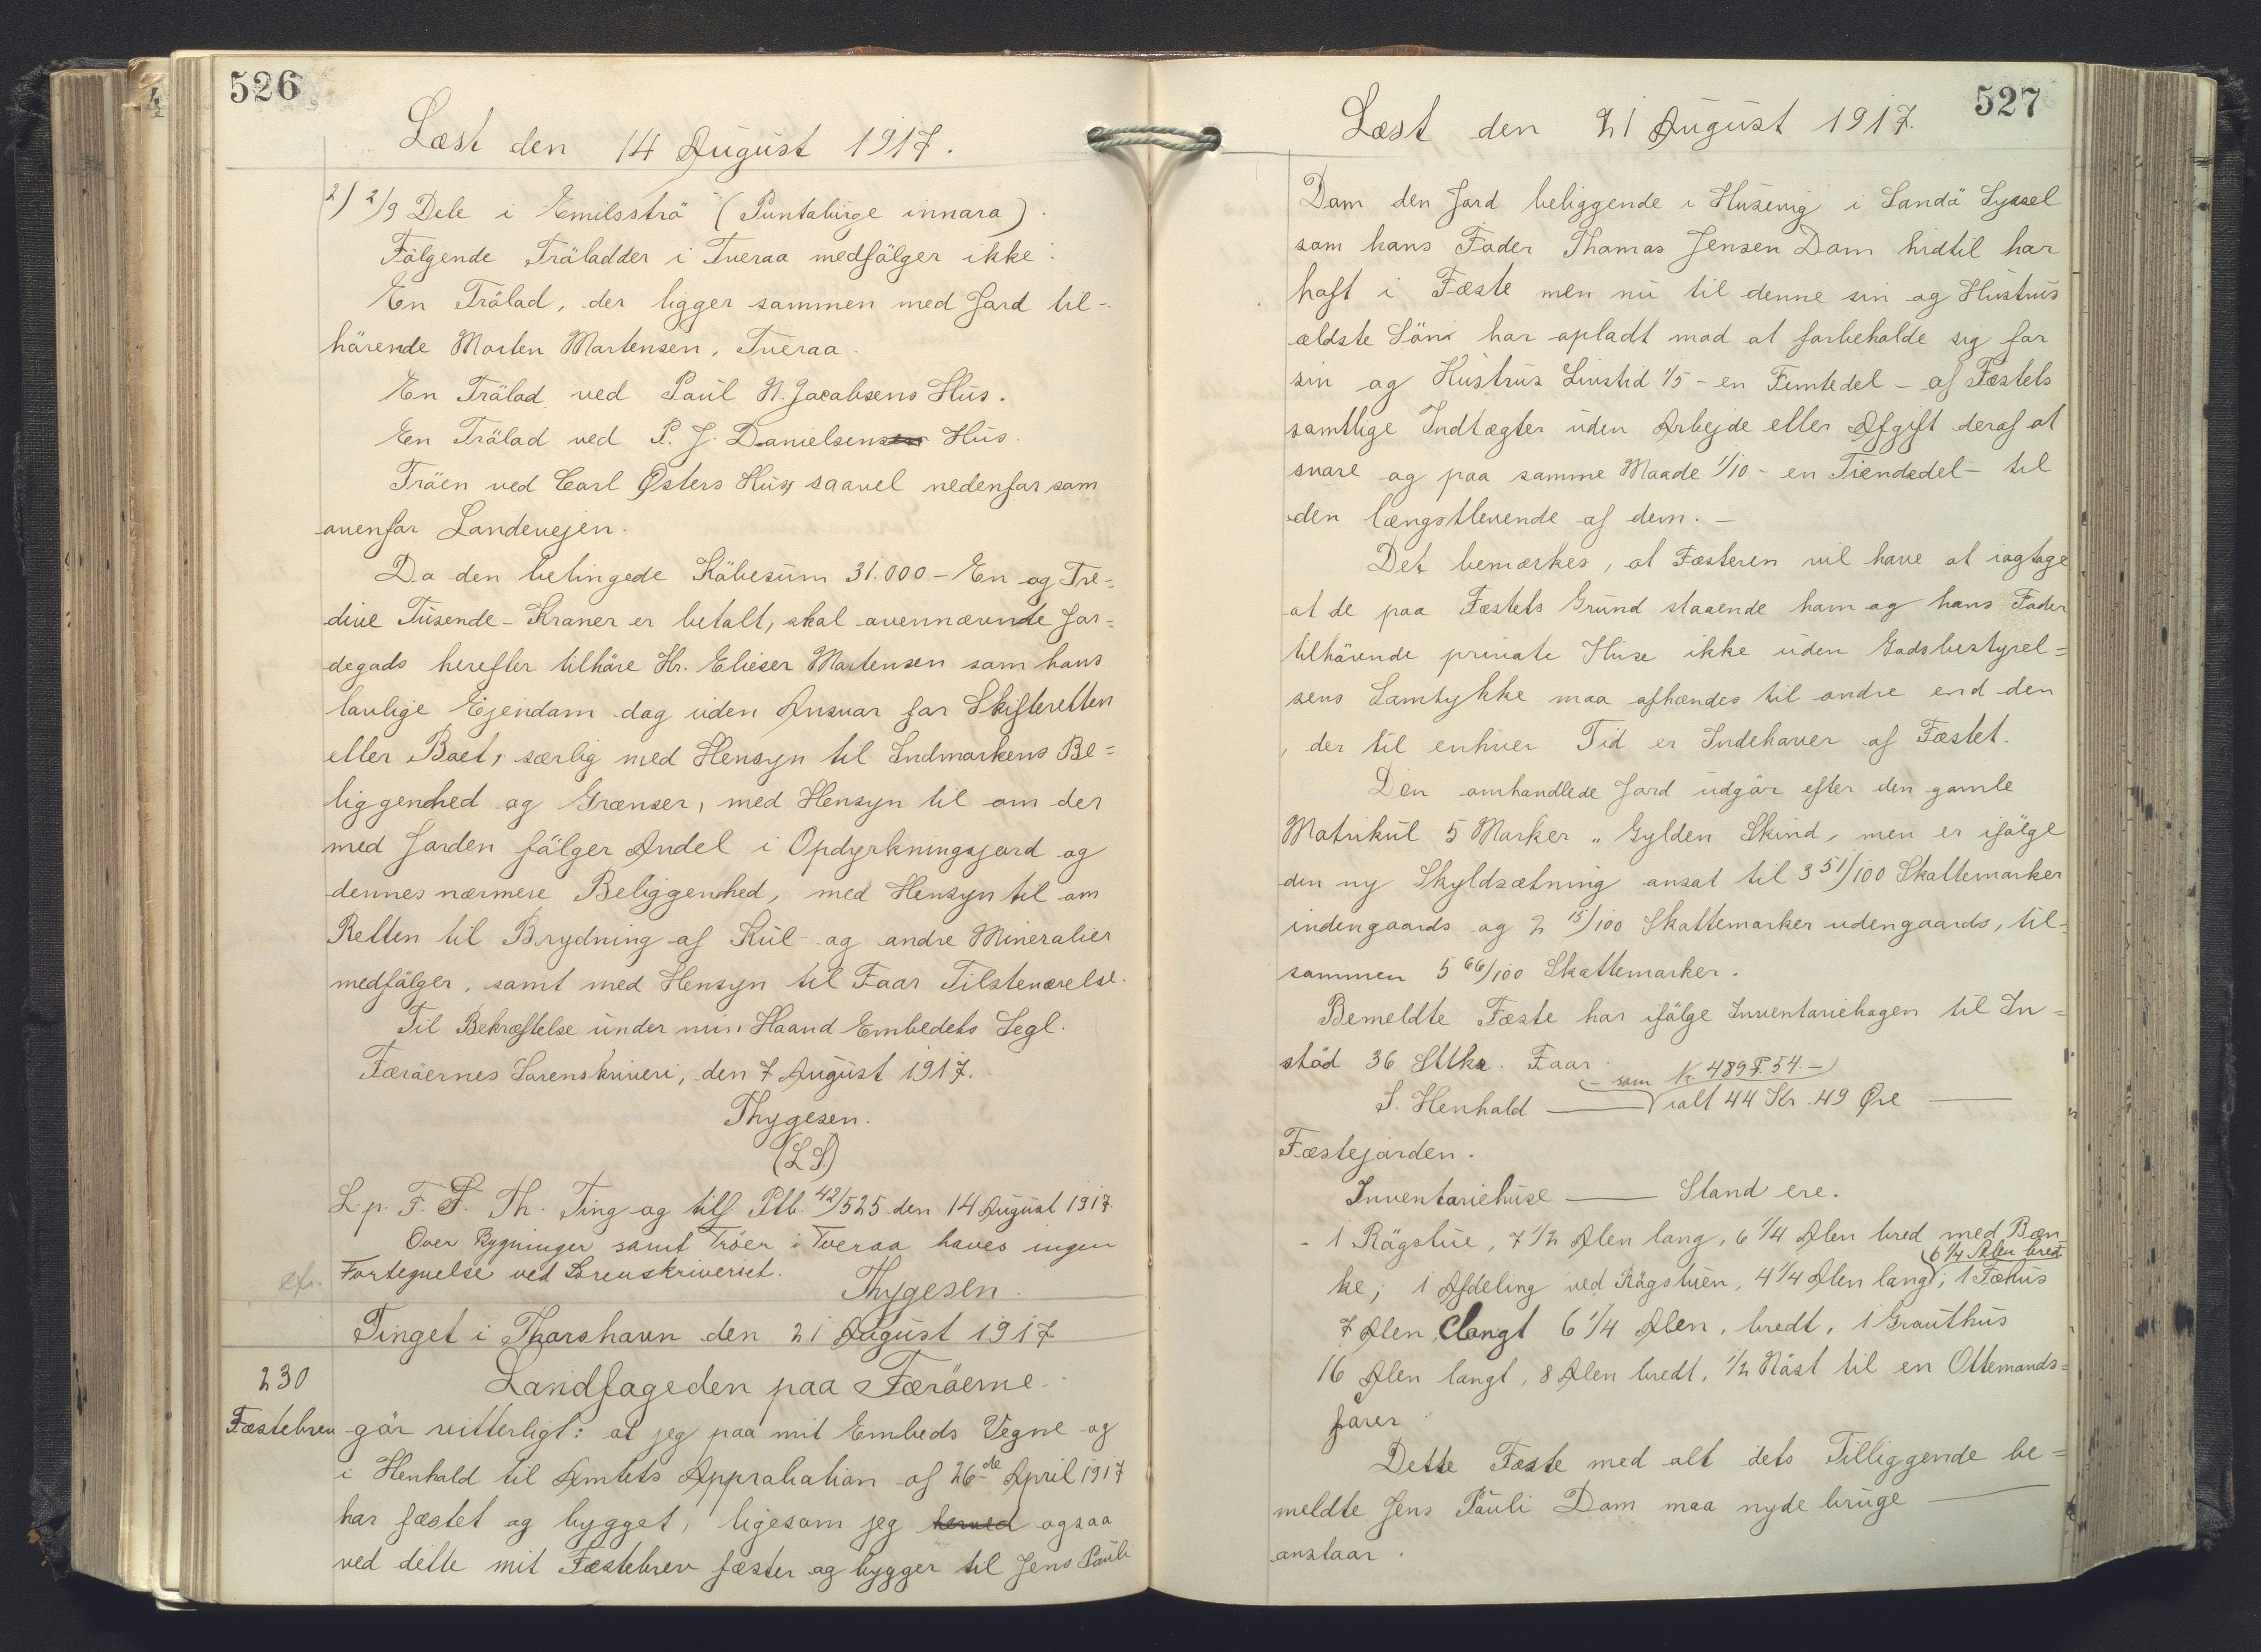 526
Læst den 14 August 1917.
2) 2/9 Dele i Emilsströ (Puntaburge innara).
Fölgende Tröladder i Tveraa medfölger ikke:
En Trölad, der ligger sammen med Jord til-
hörende Morten Mortensen, Tveraa.
En Trölad ved Poul N. Jacobsens Hus.
En Trölad ved P. J. Danielsens Hus.
Tröen ved Carl Østers Hus saavel nedenfor som
ovenfor Landevejen.
Da den betingede Köbesum 31.000 - En og Tre=
dive Tusende - Kroner er betalt, skal ovennævnte Jor=
degods herefter tilhöre Hr. Elieser Mortensen som hans
lovlige Ejendom dog uden Ansvar for Skifteretten
eller Boet, særlig med Hensyn til Indmarkens Be=
liggenhed og Grænser, med Hensyn til om der
med Jorden fölger Andel i Opdyrkningsjord og
dennes nærmere Beliggenhed, med Hensyn til om
Retten til Brydning af Kul- og andre Mineralier
medfölger, samt med Hensyn til Faar Tilstenærelse.
Til Bekræftelse under min Haand Embedets Segl.
Færöernes Sorenskriveri, den 7 August 1917.
Thygesen.
(L.S.)
L. p. F. S. Th. Ting og tilf. Ptb. 42/525 den 14 August 1917.
Over Bygninger samt Tröer i Tveraa haves ingen
cfr. Fortegnelse ved Sorenskriveriet.
Thygesen.
Tinget i Thorshavn den 21 August 1917
230
Landfogeden paa Færöerne
Fæstebrev
gör vitterligt: at jeg paa mit Embeds Vegne og
i Henhold til Amtets Approbation af 26de April 1917
har fæstet og bygget, ligesom jeg herved ogsaa
ved dette mit Fæstebrev fæster og bygger til Jens Pauli
527
Læst den 21 August 1917.
Dam den Jord beliggende i Husevig i Sandö Syssel
som hans Fader Thomas Jensen Dam hidtil har
haft i Fæste men nu til denne sin og Hustrus
ældste Sön har opladt mod at forbeholde sig for
sin og Hustrus Livstid 1/5 - en Femtedel - af Fæstets
samtlige Indtægter uden Arbejde eller Afgift deraf at
svare og paa samme Maade 1/10 - en Tiendedel - til
den længstlevende af dem. -
Det bemærkes, at Fæsteren vil have at iagtage
at de paa Fæstets Grund staaende ham og hans Fader
tilhörende private Huse ikke uden Godsbestyrel=
sens Samtykke maa afhændes til andre end den
, der til enhver Tid er Indehaver af Fæstet.
Den omhandlede Jord udgör efter den gamle
Matrikul 5 Marker " Gylden Skind, men er ifölge
den ny Skyldsætning ansat til 3 51/100 Skattemarker
indengaards og 2 15/100 Skattemarker udengaards, til=
sammen 5 66/100 Skattemarker.
Bemeldte Fæste har ifölge Inventariebogen til In=
stöd 36 Sttkr. Faar.
- som Nr 489 F. 54. -
I Henhold ialt 44 Kr. 49 Øre
Fæstejorden.
Inventariehuse Stand ere.
1 Rögstue, 7 1/2 Alen lang, 6 1/4 Alen bred med Bæn-
6 1/4 Alen bred
ke; 1 Afdeling ved Rögstuen, 4 1/4 Alen lang; 1 Fæhus
7 Alen langt 6 1/4 Alen, bredt, 1 Grouthus
16 Alen langt, 8 Alen bredt, 1/2 Nöst til en Ottemands=
farer
Dette Fæste med alt dets Tilliggende be=
meldte Jens Pauli Dam maa nyde bruge
anstaar.